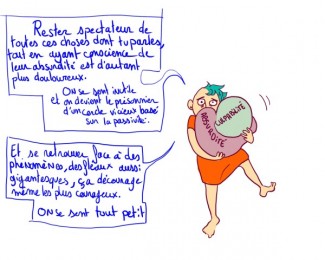 Rester spectateur de
toutes ces choses dont tu parles,
tout en ayant conscience de
leur absurdité est d'autant
plus douloureux.
On se sent inutile
et on devient le prisonnier
d'un cercle vicieux basé
sur la passivité.
ABSURDITÉ
CULPABILITÉ
Et se retrouver face à des
phénomènes, des fléaux aussi
gigantesques, ça décourage
même les plus courageux.
On se sent tout petit